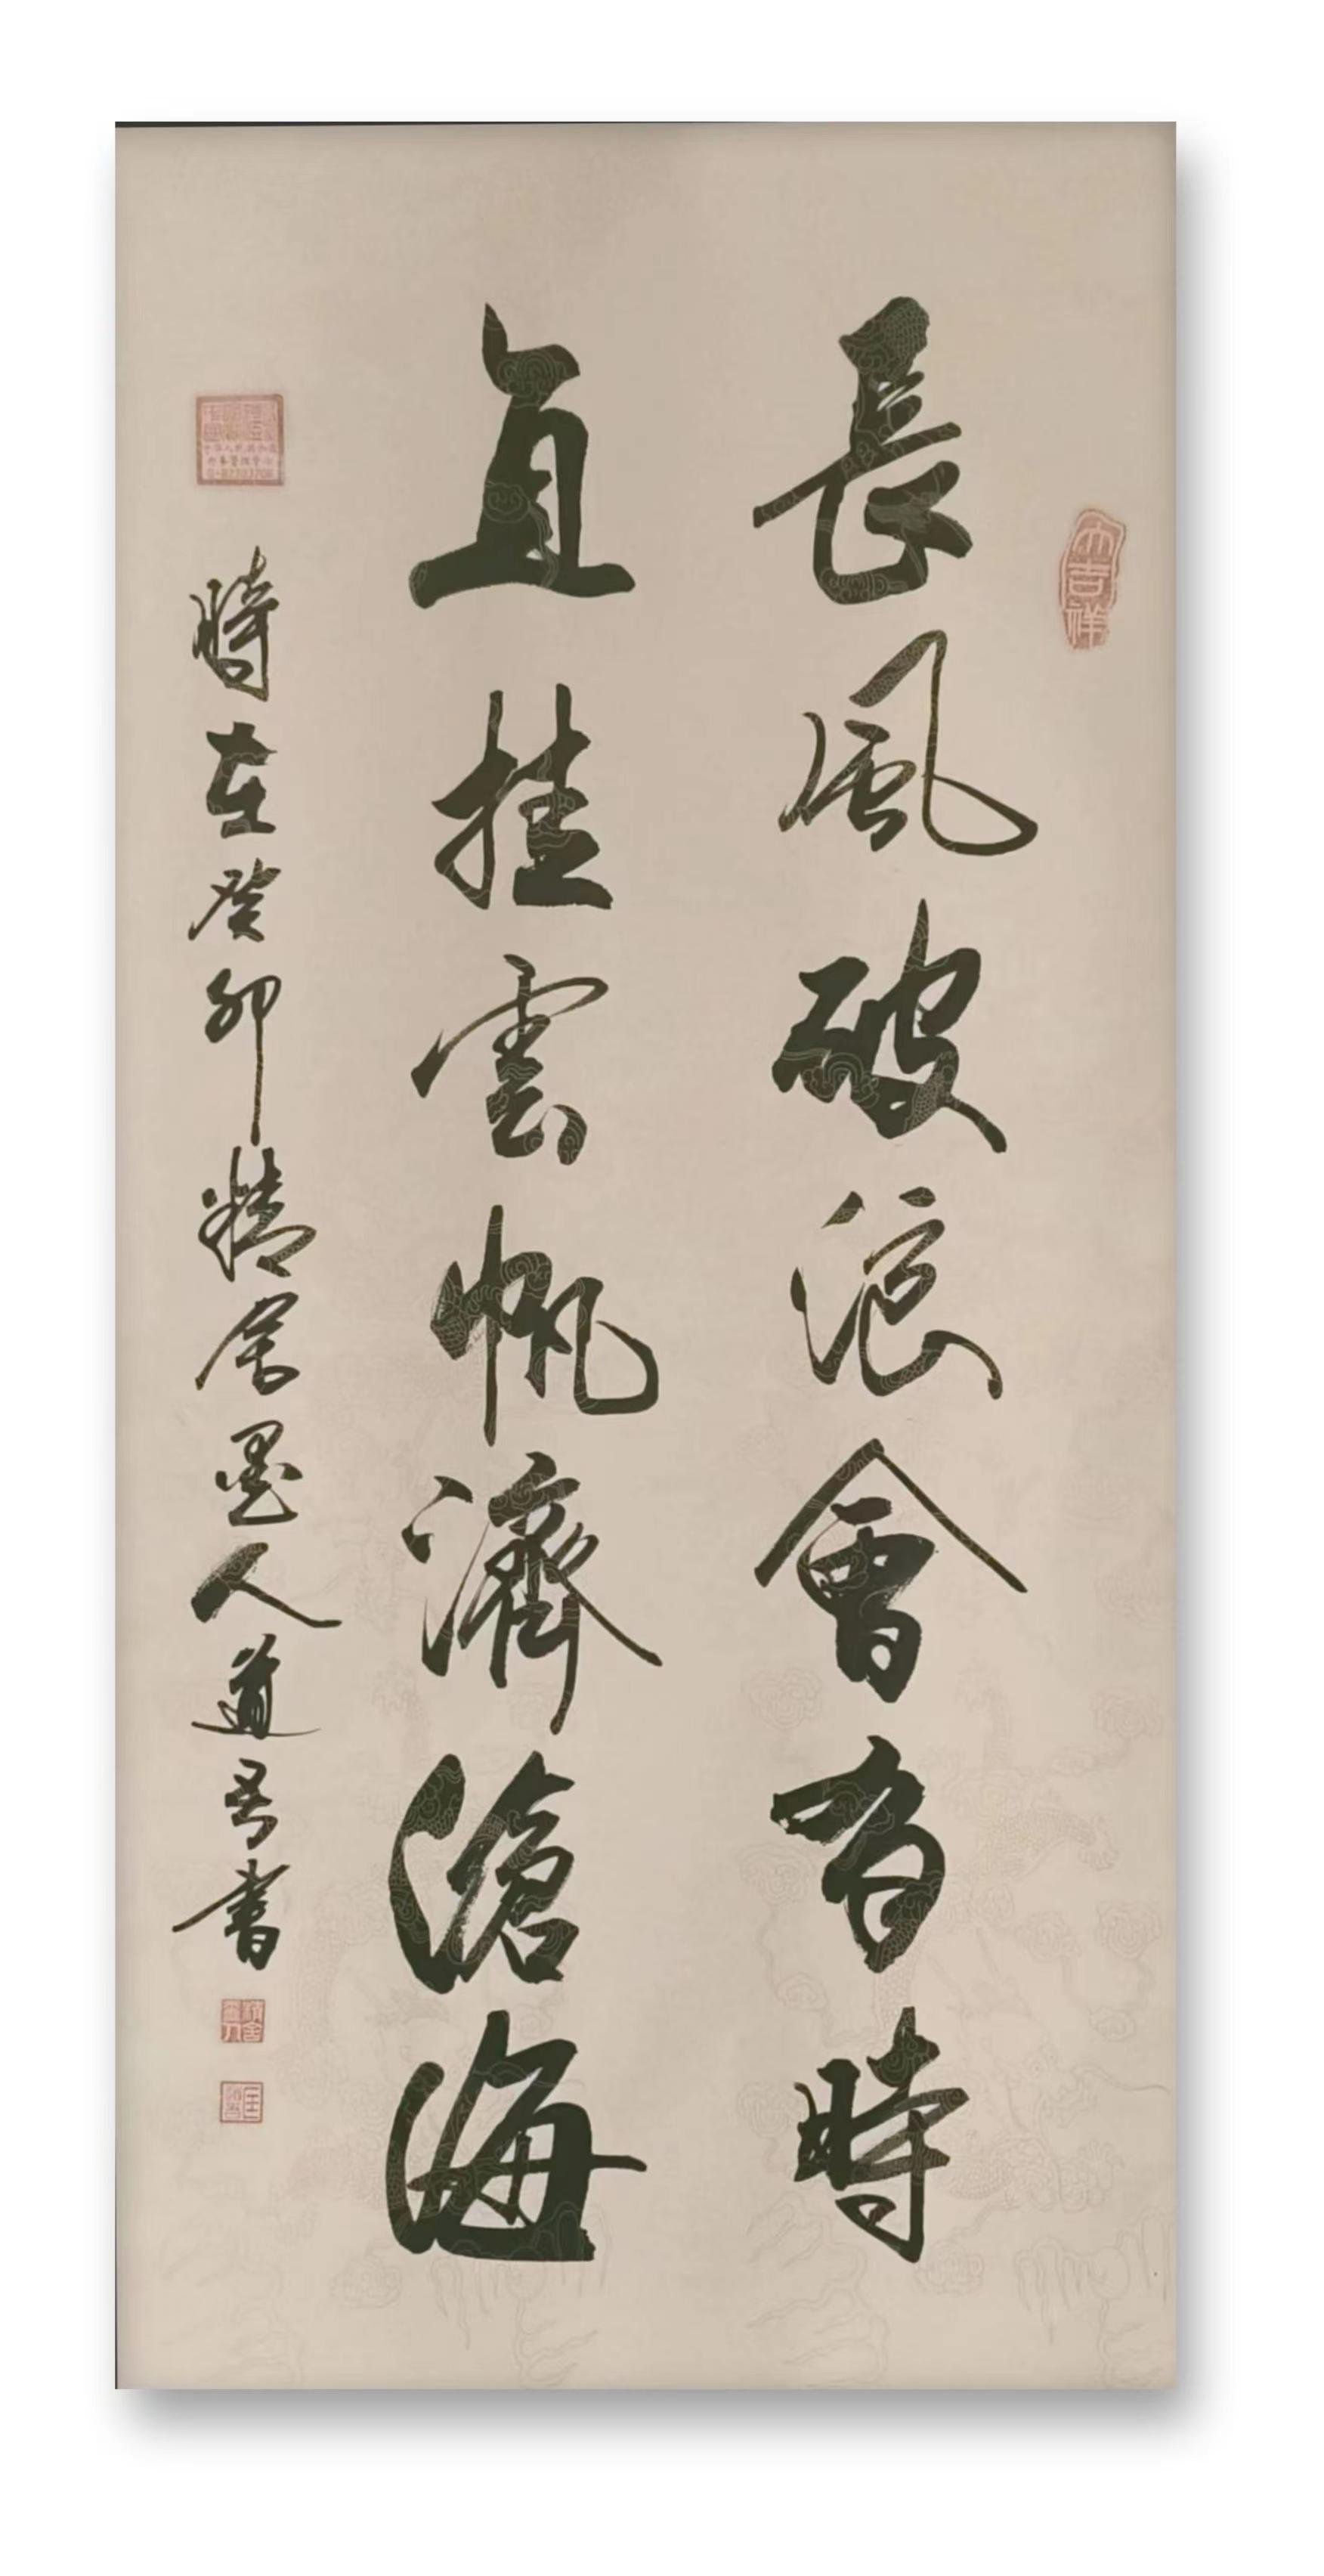 長風破浪會有時
直挂雲帆濟滄海
時在癸卯精舍墨人道吾書
大吉祥